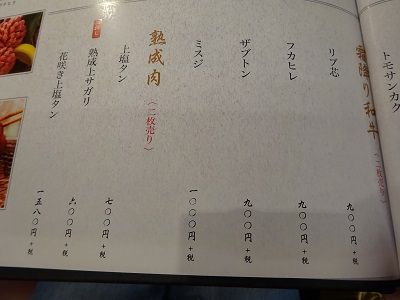 トモサンカク
霜降り和牛（二枚売り）
リブ芯 九〇〇円+税
フカヒレ 九〇〇円+税
ザブトン 九〇〇円+税
ミスジ 一〇〇〇円+税
熟成肉（二枚売り）
上塩タン 七〇〇円+税
熟成上サガリ 六〇〇円+税
花咲き上塩タン 一五八〇円+税